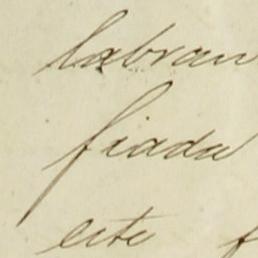 labran
fiada
este f